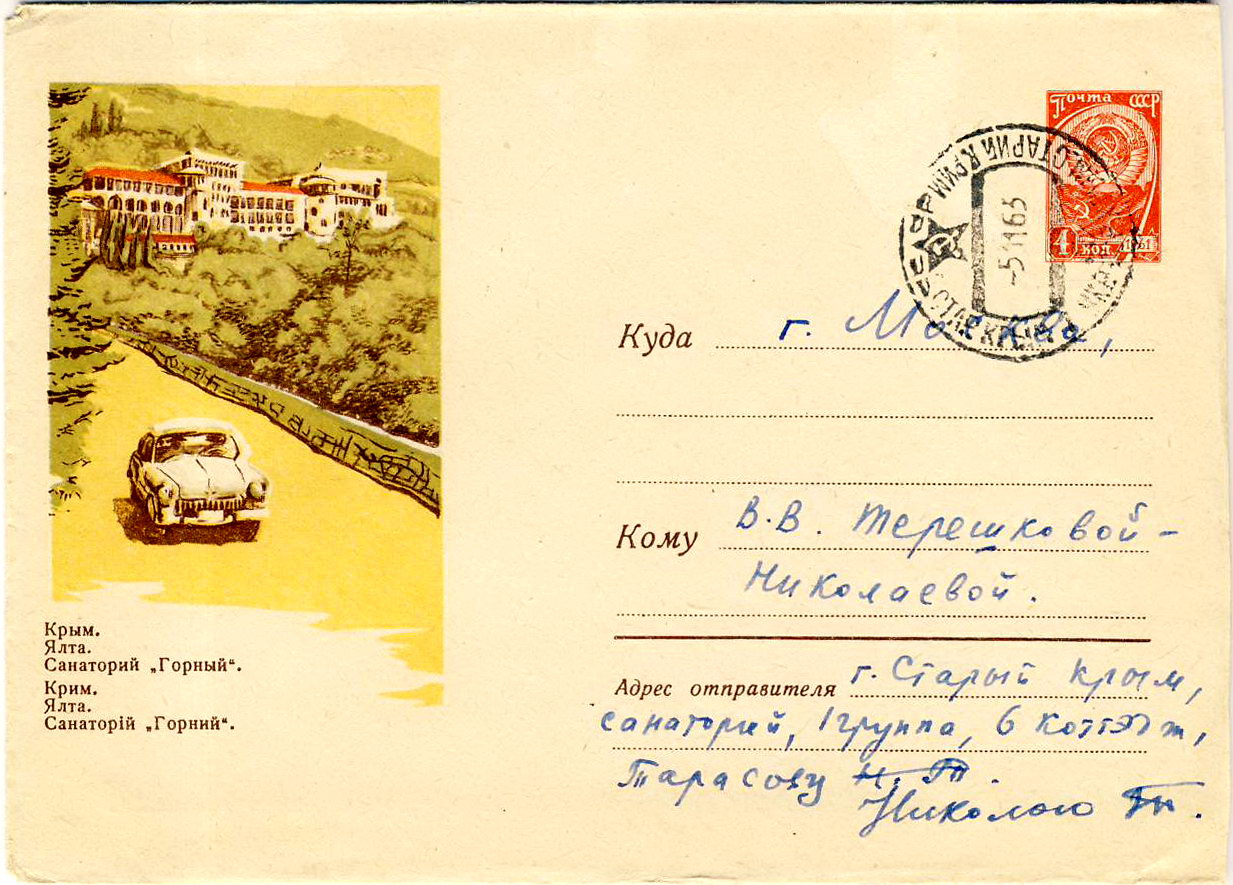 Почта СССР
4 коп. 1961
СТАРИЙ КРИМ
-5 11 63
Куда г. Москва,
Кому В.В. Терешковой-
Николаевой.
Адрес отправителя г. Старый Крым,
санаторий, 1 группа, 6 коттэдж,
Тарасову Н. П.
Николаю
Крым.
Ялта.
Санаторий „Горный“.
Крим.
Ялта.
Санаторій „Горний“.